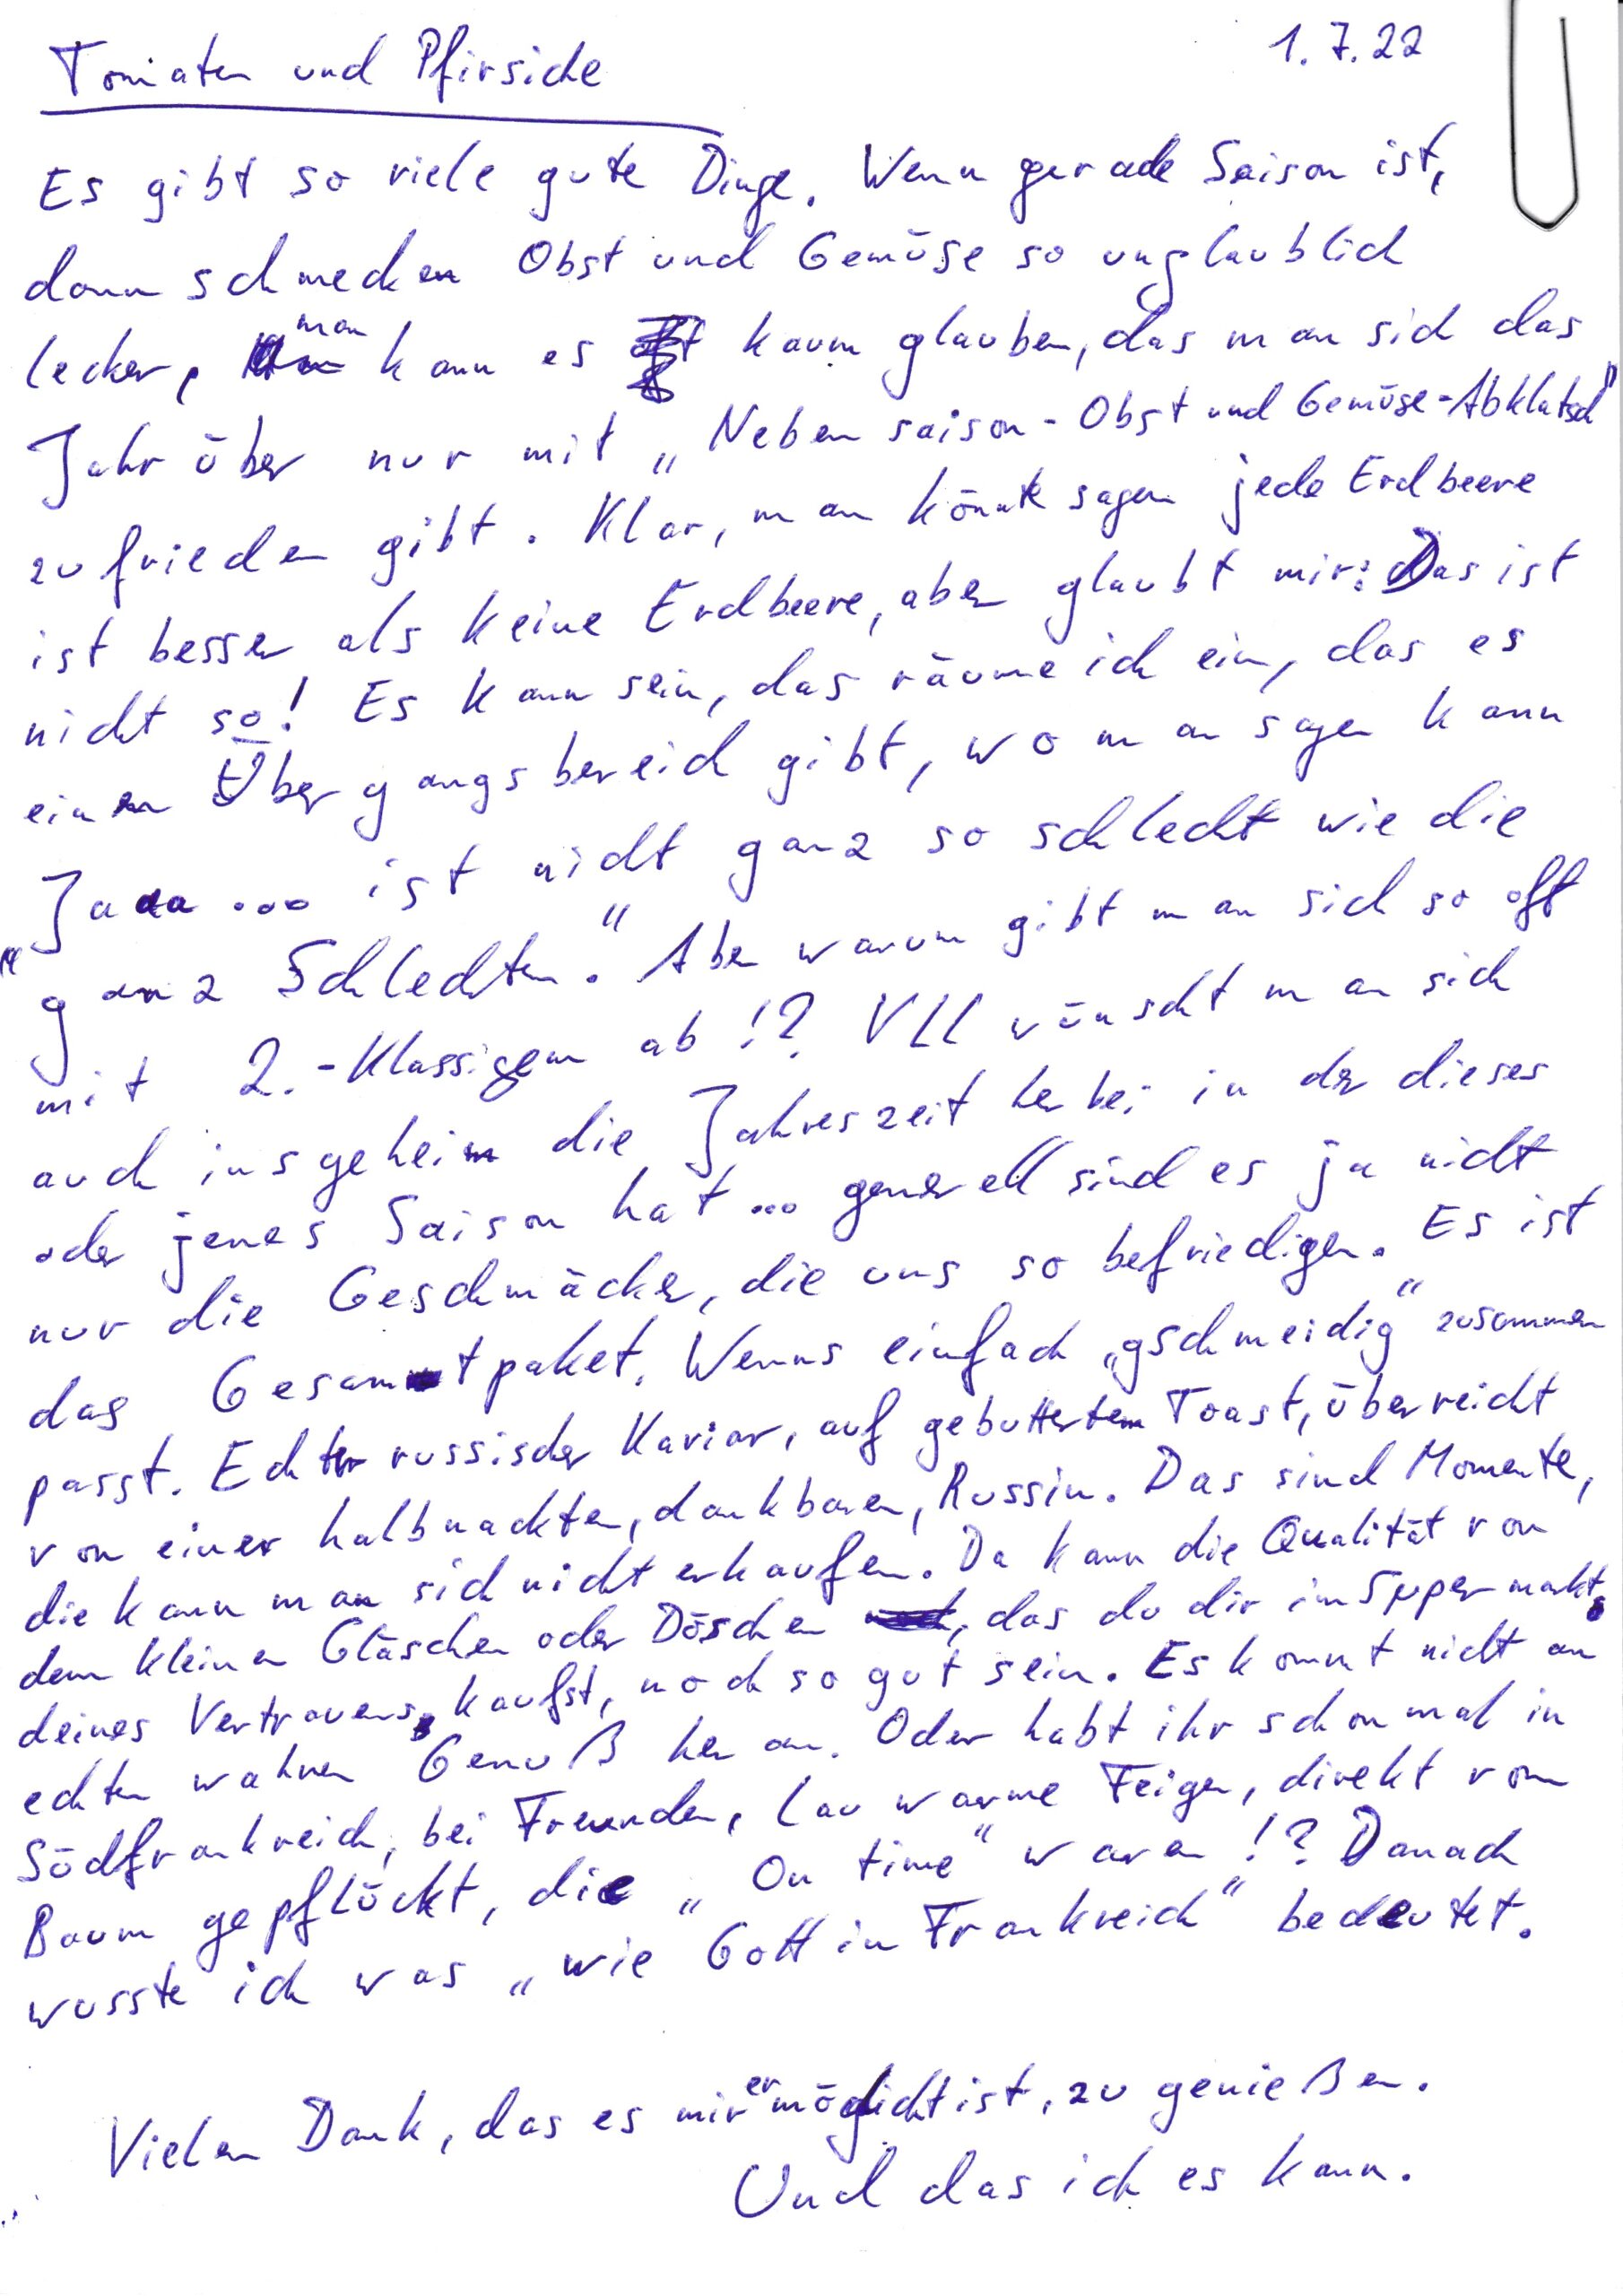 Tomaten und Pfirsiche
1.7.22
Es gibt so viele gute Dinge. Wenn gerade Saison ist,
dann schmecken Obst und Gemüse so unglaublich
lecker, man kann es kaum glauben, das man sich das
Jahr über nur mit „Nebensaison-Obst und Gemüse-Abklatsch"
zufrieden gibt. Klar, man könnte sagen jede Erdbeere
ist besser als keine Erdbeere, aber glaubt mir: Das ist
nicht so! Es kann sein, das räume ich ein, das es
einen Übergangsbereich gibt, wo man sagen kann
„Jaaa ... ist nicht ganz so schlecht wie die
ganz Schlechten." Aber warum gibt man sich so oft
mit 2.-Klassigem ab!? Vll wünscht man sich
auch insgeheim die Jahreszeit herbei in der dieses
oder jenes Saison hat ... generell sind es ja nicht
nur die Geschmäcker, die uns so befriedigen. Es ist
das Gesamtpaket. Wenns einfach „gschmeidig" zusammen
passt. Echter russischer Kaviar, auf gebuttertem Toast, überreicht
von einer halbnackten, dankbaren, Russin. Das sind Momente,
die kann man sich nicht erkaufen. Da kann die Qualität von
dem kleinen Gläschen oder Döschen, das du dir im Supermarkt
deines Vertrauens kaufst, noch so gut sein. Es kommt nicht an
echten wahren Genuß heran. Oder habt ihr schonmal in
Südfrankreich, bei Freunden, lauwarme Feigen, direkt vom
Baum gepflückt, die „On time" waren!? Danach
wusste ich was „wie Gott in Frankreich" bedeutet.
Vielen Dank, das es mir ermöglicht ist, zu genießen.
Und das ich es kann.